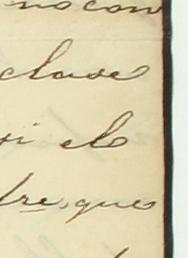 no con
clase
si el
dre, que